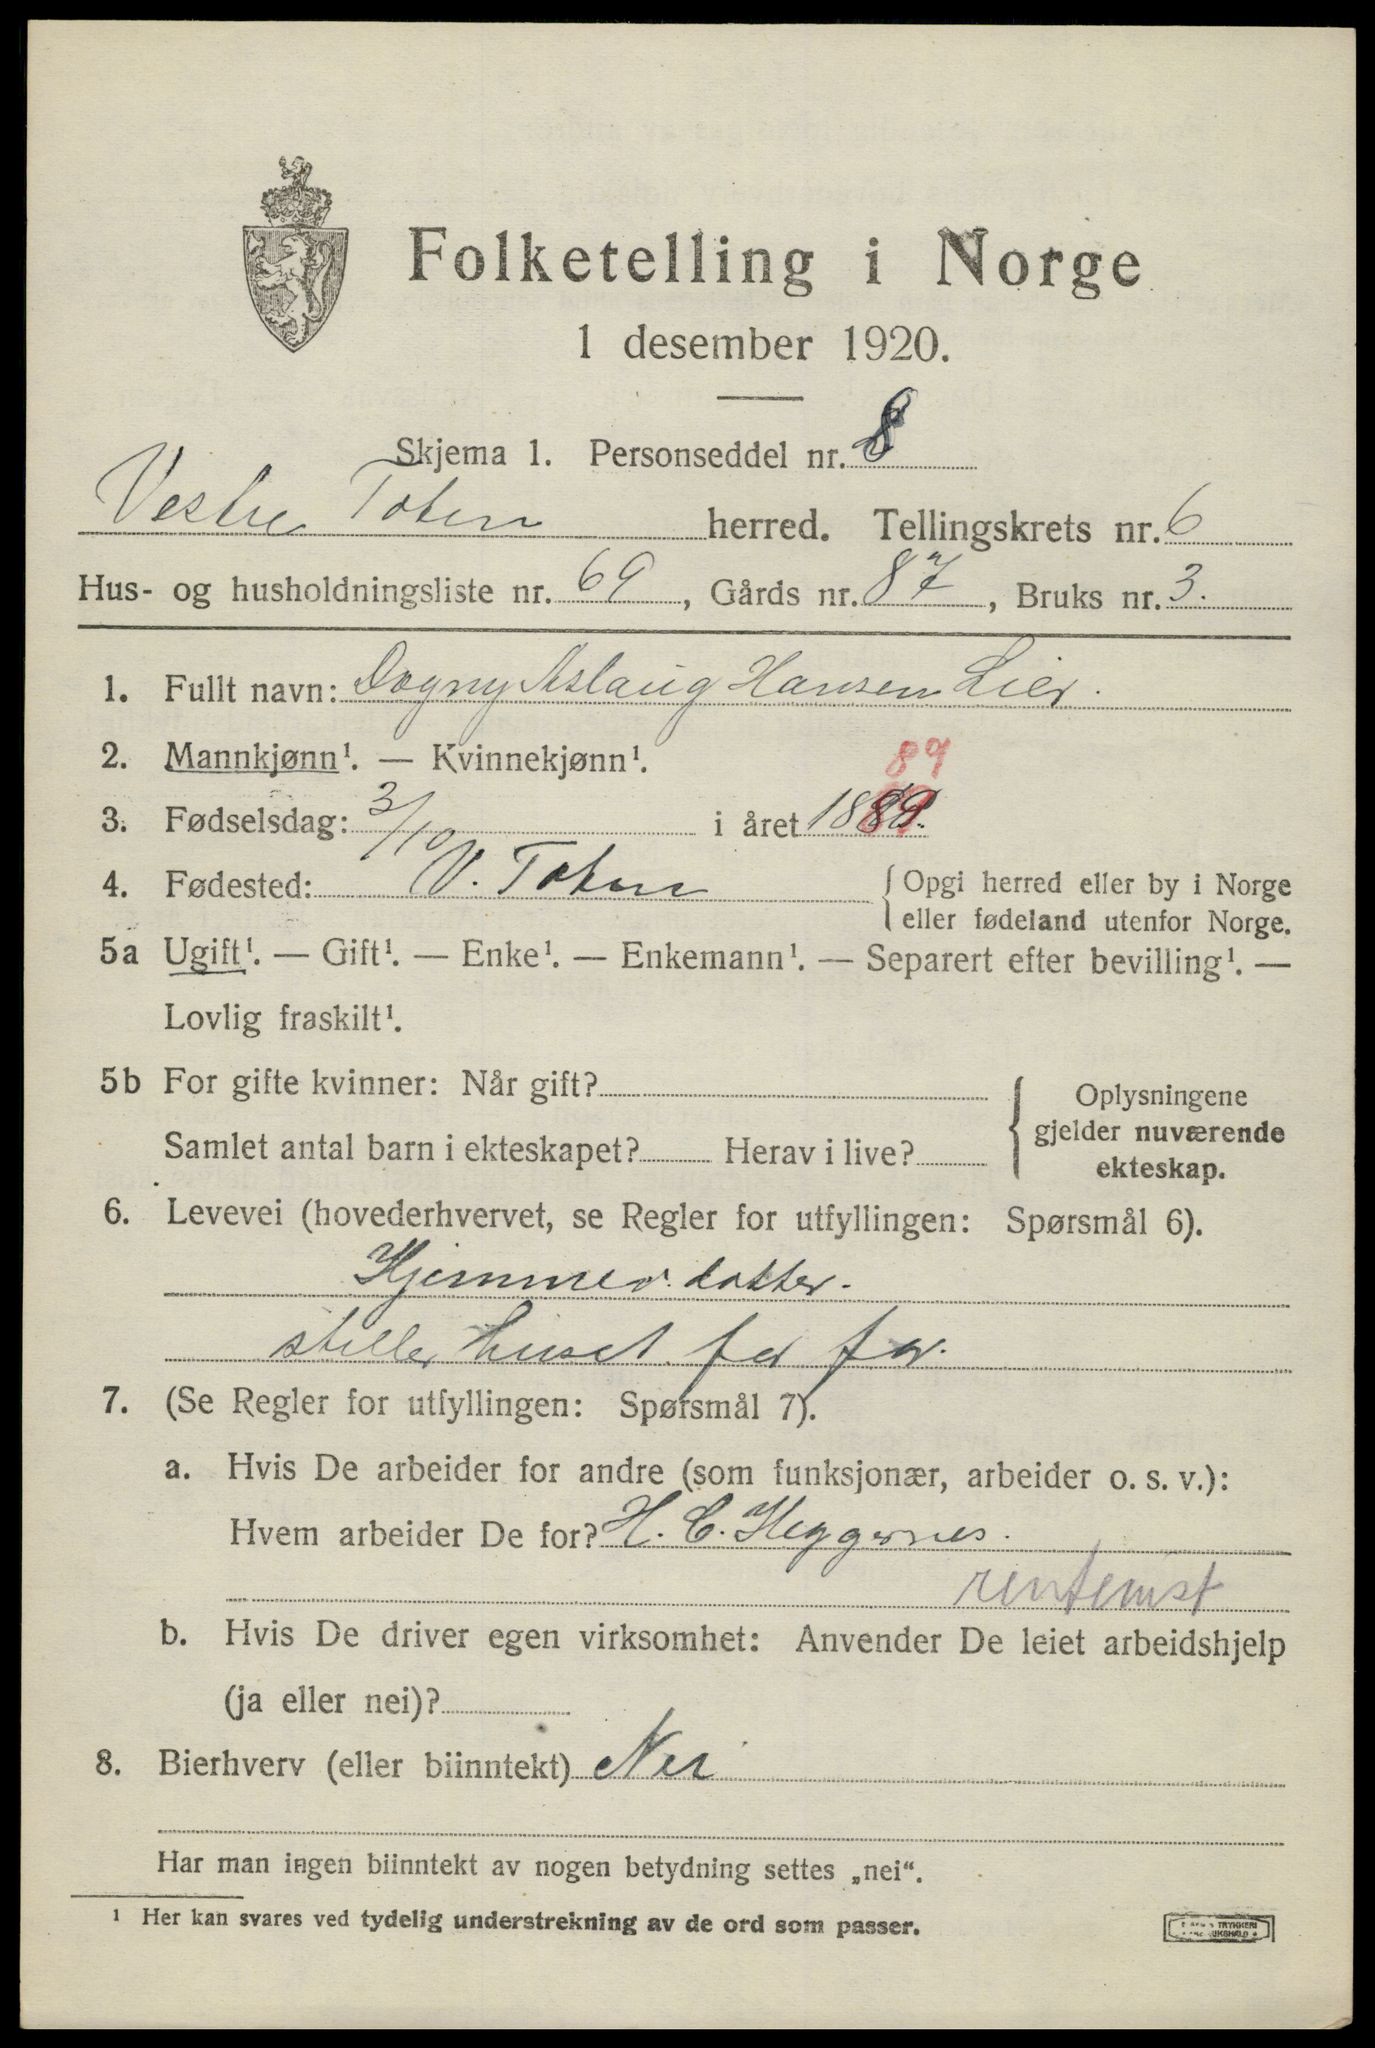 Folketelling i Norge
1 desember 1920.
Skjema 1. Personseddel nr. 8
Vestre Toten herred. Tellingskrets nr. 6
Hus- og husholdningsliste nr. 69, Gårds nr. 87, Bruks nr. 3.
1. Fullt navn: Dagny Aslaug Hansen Lier.
2. Mannkjønn¹. — Kvinnekjønn¹.
89
3. Fødselsdag: 3/10 i året 1889.
4. Fødested: V. Toten { Opgi herred eller by i Norge
eller fødeland utenfor Norge.
5a Ugift¹. — Gift¹. — Enke¹. — Enkemann¹. — Separert efter bevilling¹. —
Lovlig fraskilt¹.
5b For gifte kvinner: Når gift?
Samlet antal barn i ekteskapet? Herav i live?
Oplysningene
gjelder nuværende
ekteskap.
6. Levevei (hovederhvervet, se Regler for utfyllingen: Spørsmål 6).
Hjemmev. datter.
steller huset for far.
7. (Se Regler for utfyllingen: Spørsmål 7).
a. Hvis De arbeider for andre (som funksjonær, arbeider o. s. v.):
Hvem arbeider De for? H. C. Heggernes.
rentenist
b. Hvis De driver egen virksomhet: Anvender De leiet arbeidshjelp
(ja eller nei)?
8. Bierhverv (eller biinntekt) Nei
Har man ingen biinntekt av nogen betydning settes „nei“.
¹ Her kan svares ved tydelig understrekning av de ord som passer.